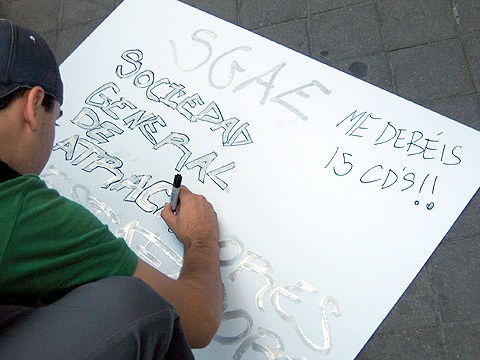 SGAE
SOCIEDAD
GENERAL
DE
ATRACA
ORES
ME DEBÉIS
15 CD'S!!